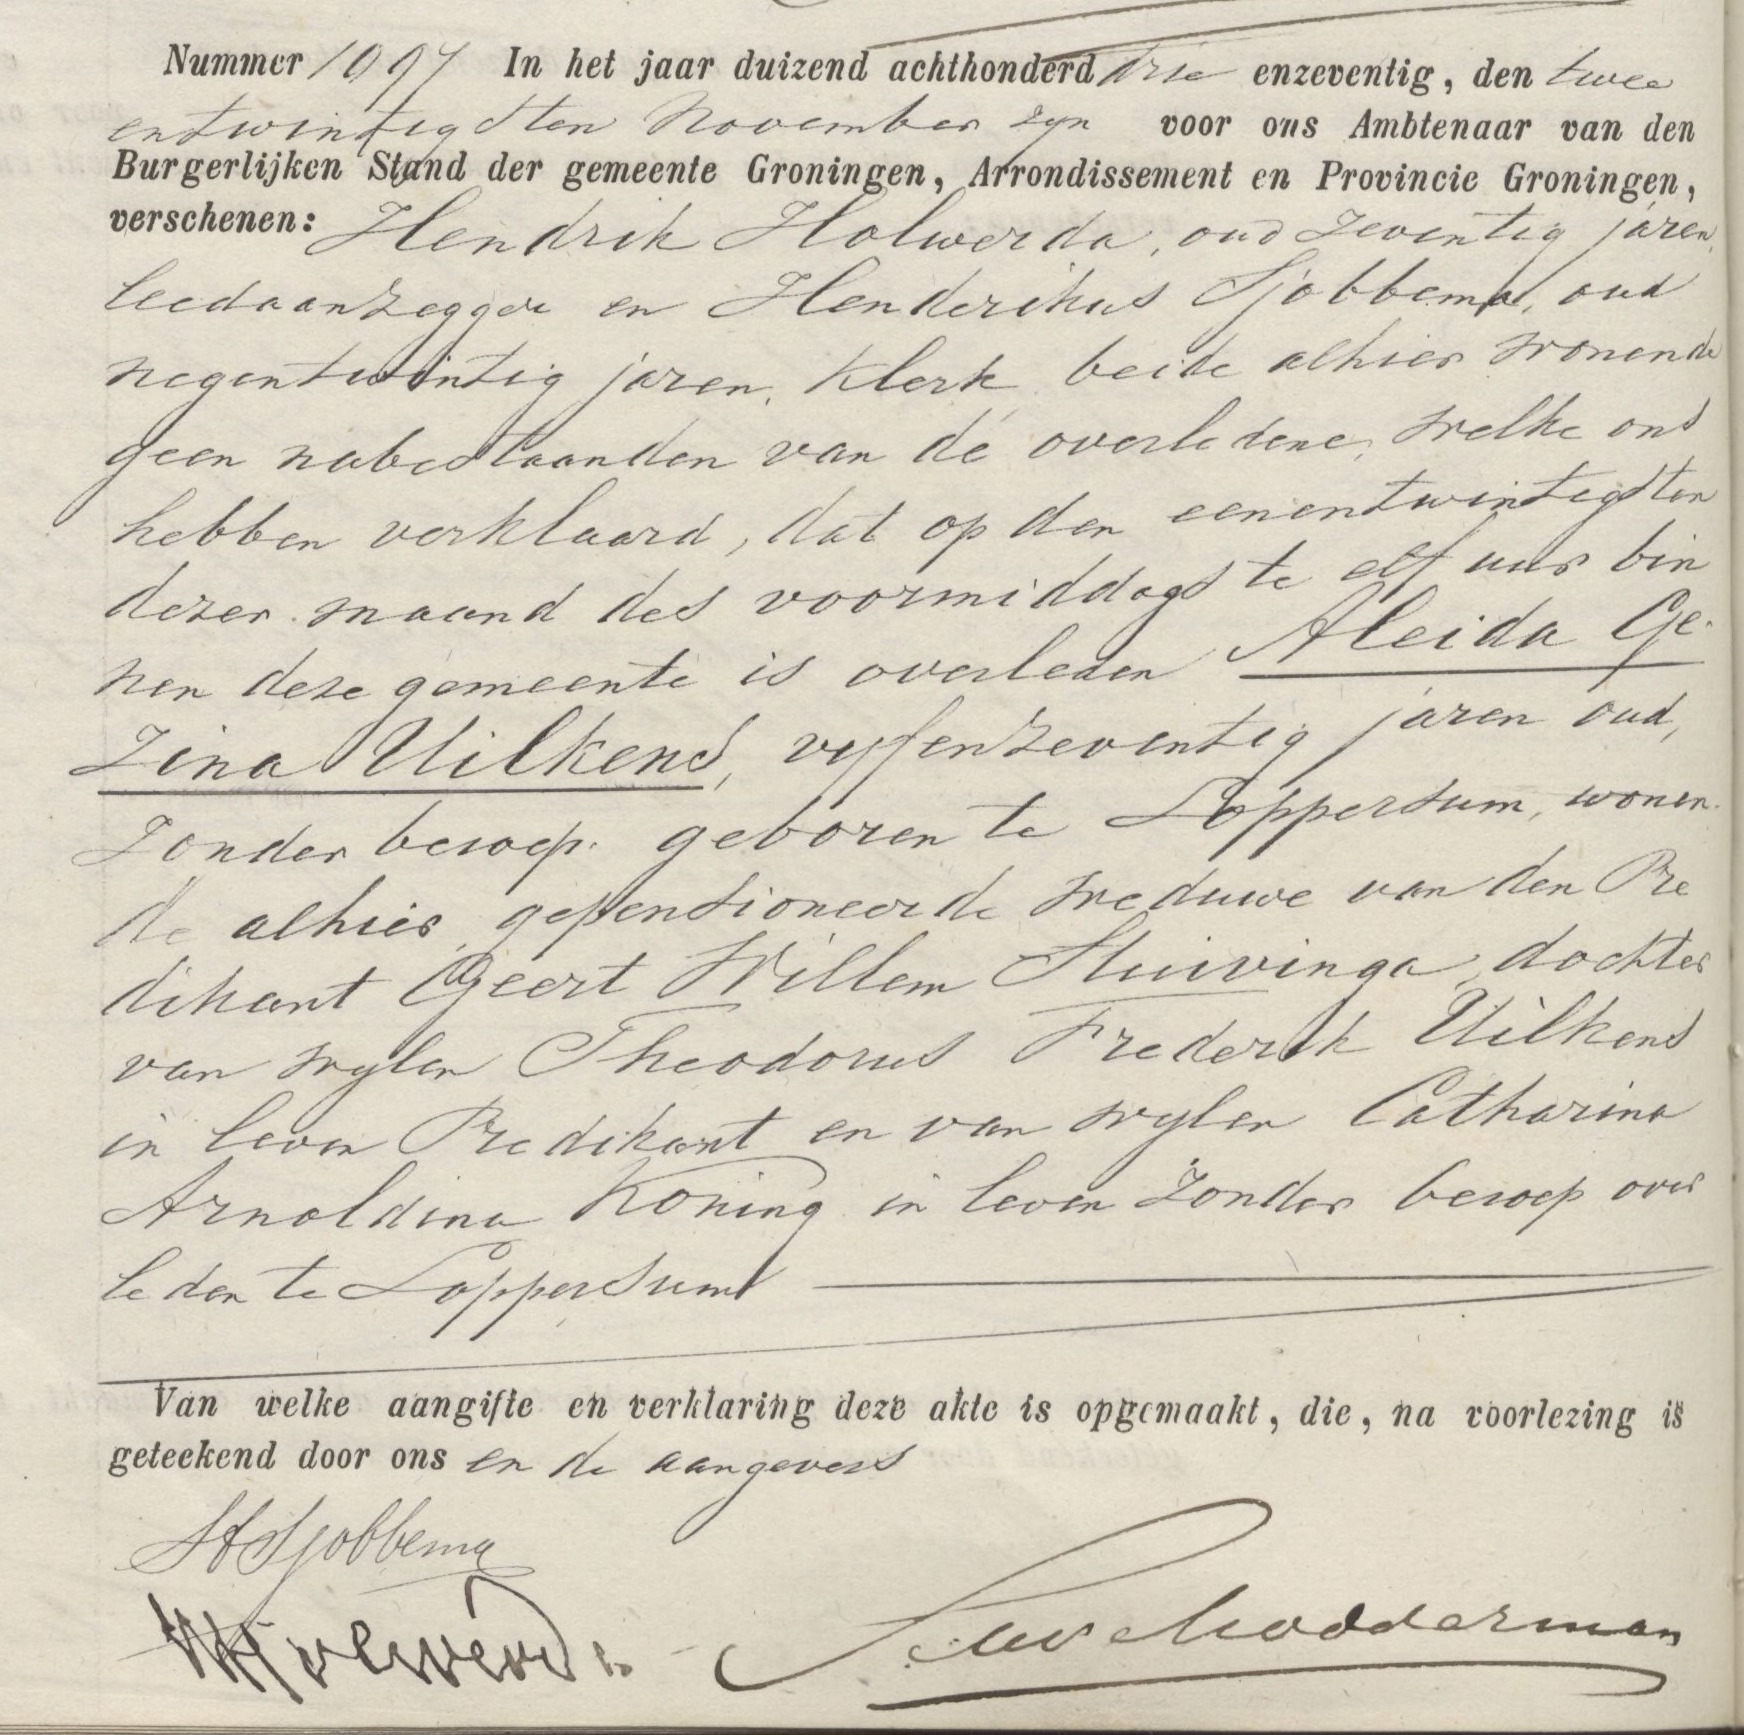 Nummer 1097 In het jaar duizend achthonderd drie enzeventig, den twee
entwintigsten November zyn voor ons Ambtenaar van den
Burgerlijken Stand der gemeente Groningen, Arrondissement en Provincie Groningen,
verschenen: Hendrik Holwerda, oud zeventig jaren,
leedaanzegger en Henderikus Sjobbema, oud
negentwintig jaren, klerk beide alhier wonende
geen nabestaanden van de overledene, welke ons
hebben verklaard, dat op den eenentwintigsten
dezer maand des voormiddags te elf uur bin
nen deze gemeente is overleden Aleida Ge-
zina Uilkens, vyfenzeventig jaren oud,
zonder beroep. geboren te Loppersum, wonen-
de alhier, gepensioneerde weduwe van den Pre
dikant Geert Willem Stuivinga, dochter
van wylen Theodorus Frederik Uilkens
in leven Predikant en van wylen Catharina
Arnoldina Koning in leven zonder beroep over
leden te Loppersum
Van welke aangifte en verklaring deze akte is opgemaakt, die, na voorlezing is
geteekend door ons en de aangevers
H Sjobbema
H Holwerda
Modderman